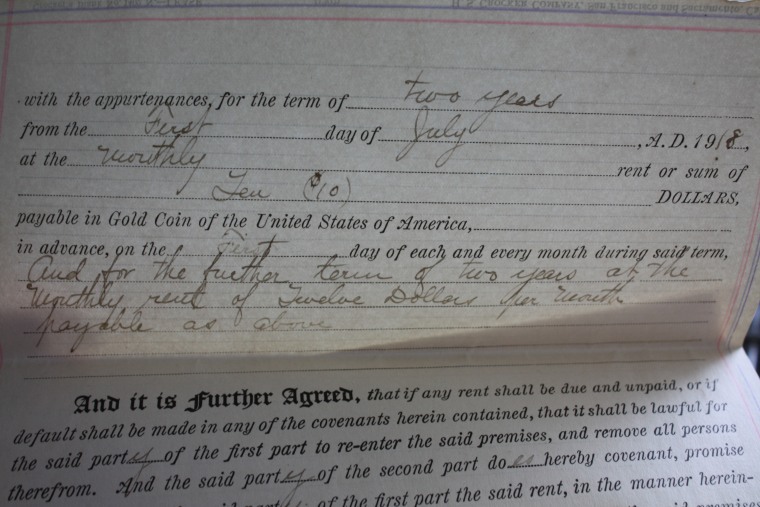 H. S. CROCKER COMPANY, San Francisco and Sacramento,
with the appurtenances, for the term of two years
from the First day of July, A.D. 1918,
at the Monthly rent or sum of
Ten ($10) DOLLARS,
payable in Gold Coin of the United States of America,
in advance, on the First day of each and every month during said term,
And for the further term of two years at the
Monthly rent of Twelve Dollars per Month
payable as above
And it is Further Agreed, that if any rent shall be due and unpaid, or if
default shall be made in any of the covenants herein contained, that it shall be lawful for
the said party of the first part to re-enter the said premises, and remove all persons
therefrom. And the said party of the second part does hereby covenant, promise
of the first part the said rent, in the manner herein-